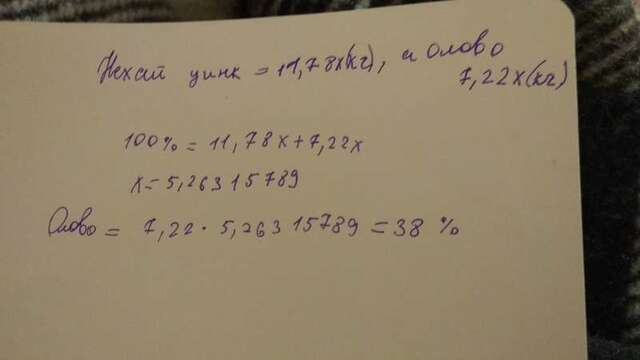 Нехай цинк = 11,78х(кг), а Олово
7,22х(кг)
100% = 11,78х+7,22х
х=5,26315789
Олово = 7,22·5,26315789=38 %